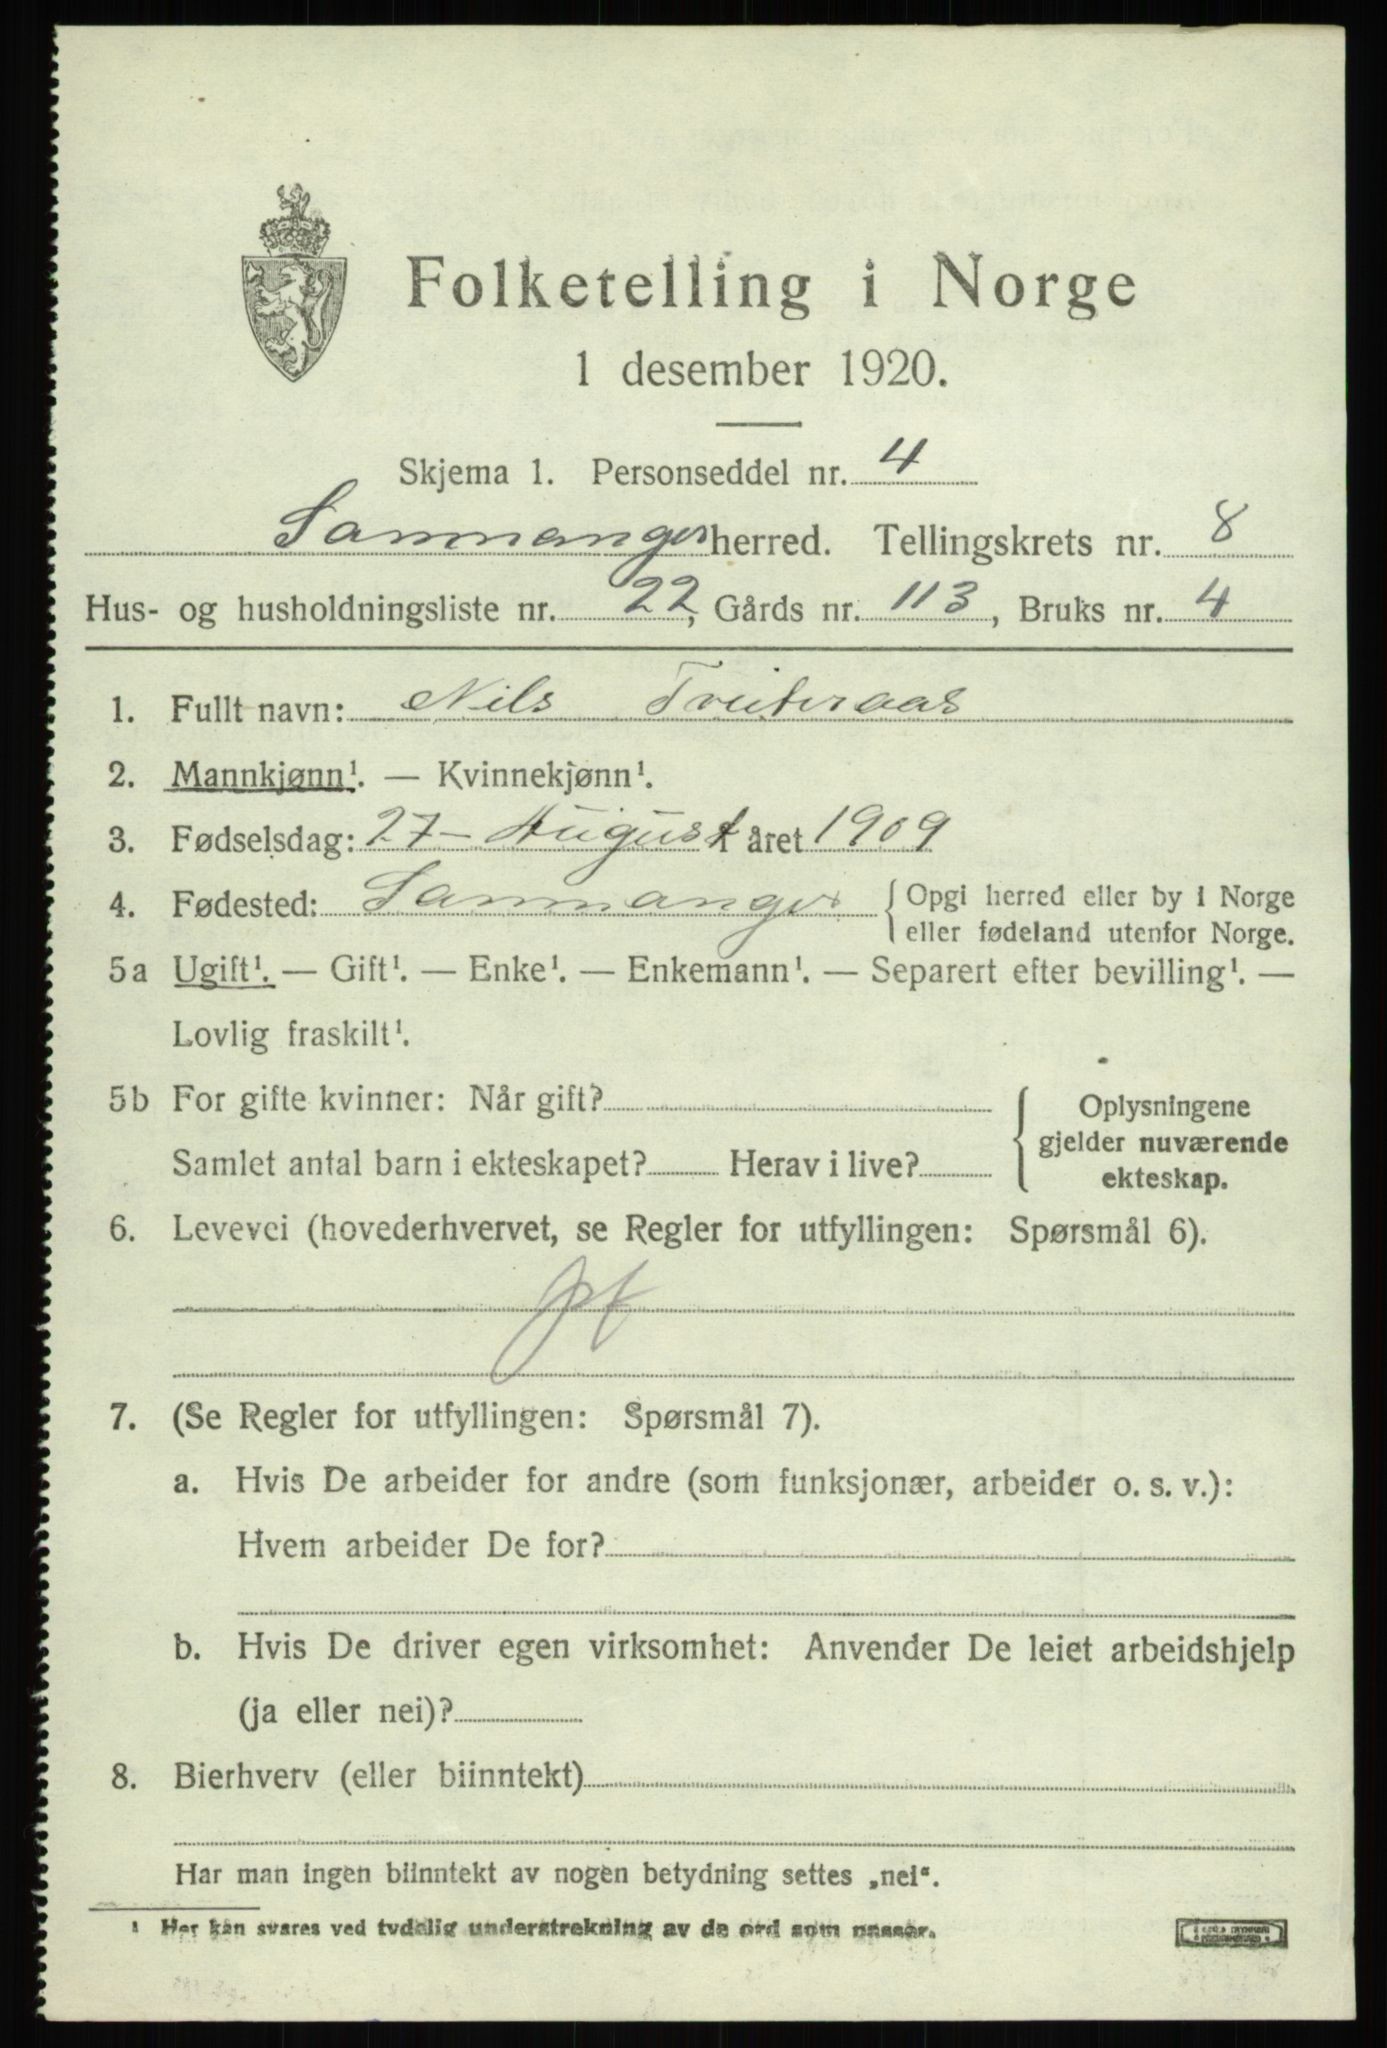 Folketelling i Norge
1 desember 1920.
Skjema 1. Personseddel nr. 4
Samnanger herred. Tellingskrets nr. 8
Hus- og husholdningsliste nr. 22, Gårds nr. 113, Bruks nr. 4
1. Fullt navn: Nils Tveiteraas
2. Mannkjønn¹. — Kvinnekjønn¹.
3. Fødselsdag: 27 - August i året 1909
4. Fødested: Samnanger { Opgi herred eller by i Norge
eller fødeland utenfor Norge.
5a Ugift¹. — Gift¹. — Enke¹. — Enkemann¹. — Separert efter bevilling¹. —
Lovlig fraskilt¹.
5b For gifte kvinner: Når gift?
Samlet antal barn i ekteskapet? Herav i live?
{ Oplysningene
gjelder nuværende
ekteskap.
6. Levevei (hovederhvervet, se Regler for utfyllingen: Spørsmål 6).
7. (Se Regler for utfyllingen: Spørsmål 7).
a. Hvis De arbeider for andre (som funksjonær, arbeider o. s. v.):
Hvem arbeider De for?
b. Hvis De driver egen virksomhet: Anvender De leiet arbeidshjelp
(ja eller nei)?
8. Bierhverv (eller biinntekt)
Har man ingen biinntekt av nogen betydning settes „nei“.
¹ Her kan svares ved tydelig understrekning av de ord som passer.